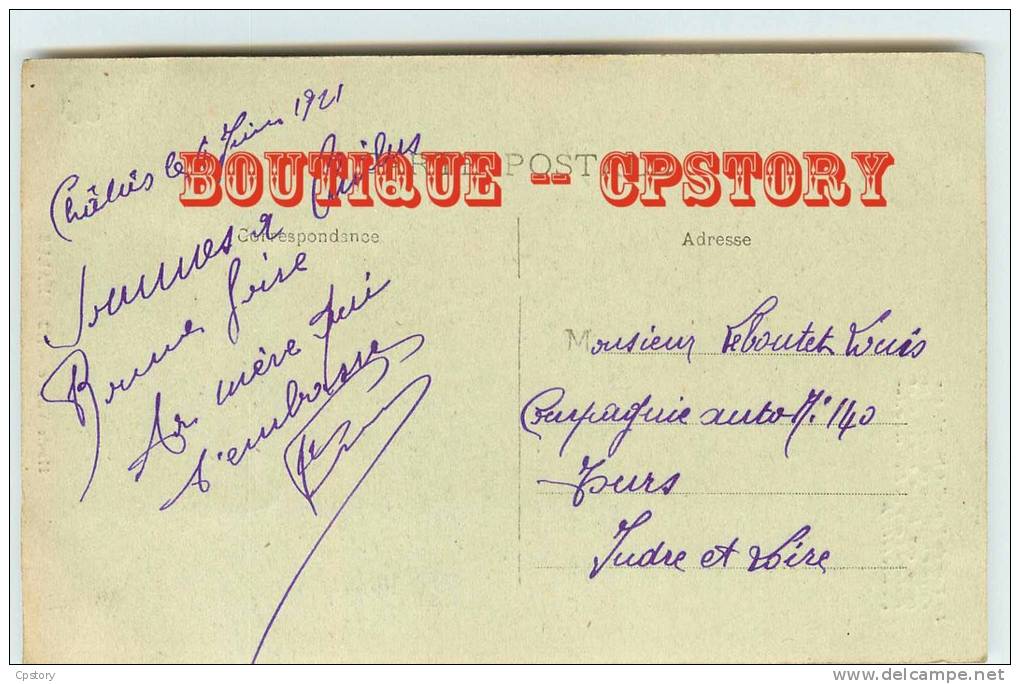 BOUTIQUE -- CPSTORY
Correspondance
Adresse
Châlus le 6 Juin 1921
Sommes à Châlus
Bonne foire
Ta mère qui
t'embrasse
Monsieur Leboutet Louis
Compagnie auto N: 140
Tours
Indre et Loire
Cpstory
www.delcampe.net